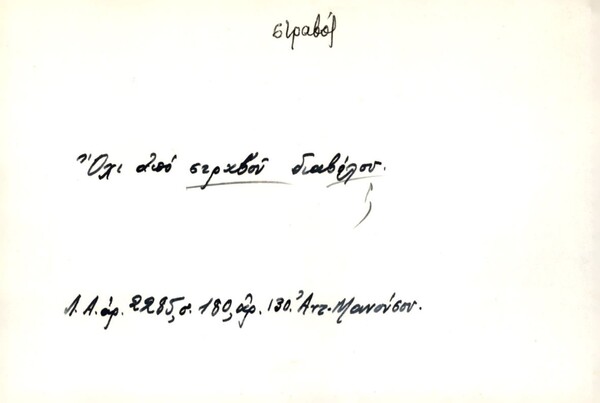 στραβός
Ὄχι ἀπό στραβοῦ διαβόλου.
Λ.Α. ἀρ. 2285, σ. 180, ἀρ. 130. Ἀντ. Μανούσου.